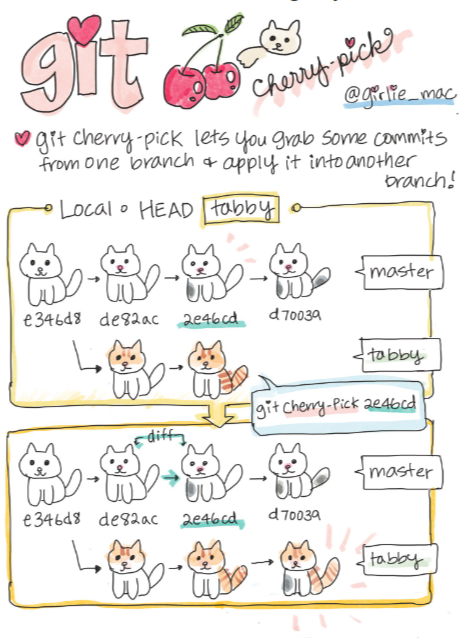 git cherry-pick
@girlie_mac
git cherry-pick lets you grab some commits
from one branch & apply it into another
branch!
Local HEAD tabby
master
e346d8 de82ac 2e46cd d70039
tabby
git cherry-pick 2e46cd
diff
master
e346d8 de82ac 2e46cd d70039
tabby